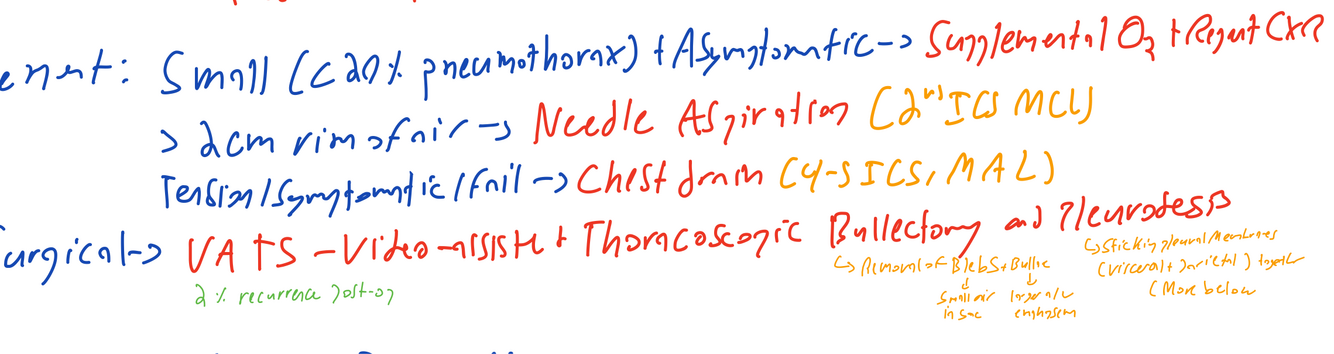 ement: Small (<20% pneumothorax) + Asymptomatic -> Supplemental O2 + Repeat CXR
> 2cm rim of air -> Needle Aspiration (2nd ICS MCL)
Tension/Symptomatic/Fail -> Chest drain (4-5 ICS, MAL)
urgical -> VATS - Video-assisted Thoracoscopic Bullectomy and Pleurodesis
2% recurrence post-op
↳ Removal of Blebs + Bullae
↓ ↓
Small air Large a/w
in sac emphysem
↳ Sticking pleural Membranes
(Visceral + Parietal) together
(More below